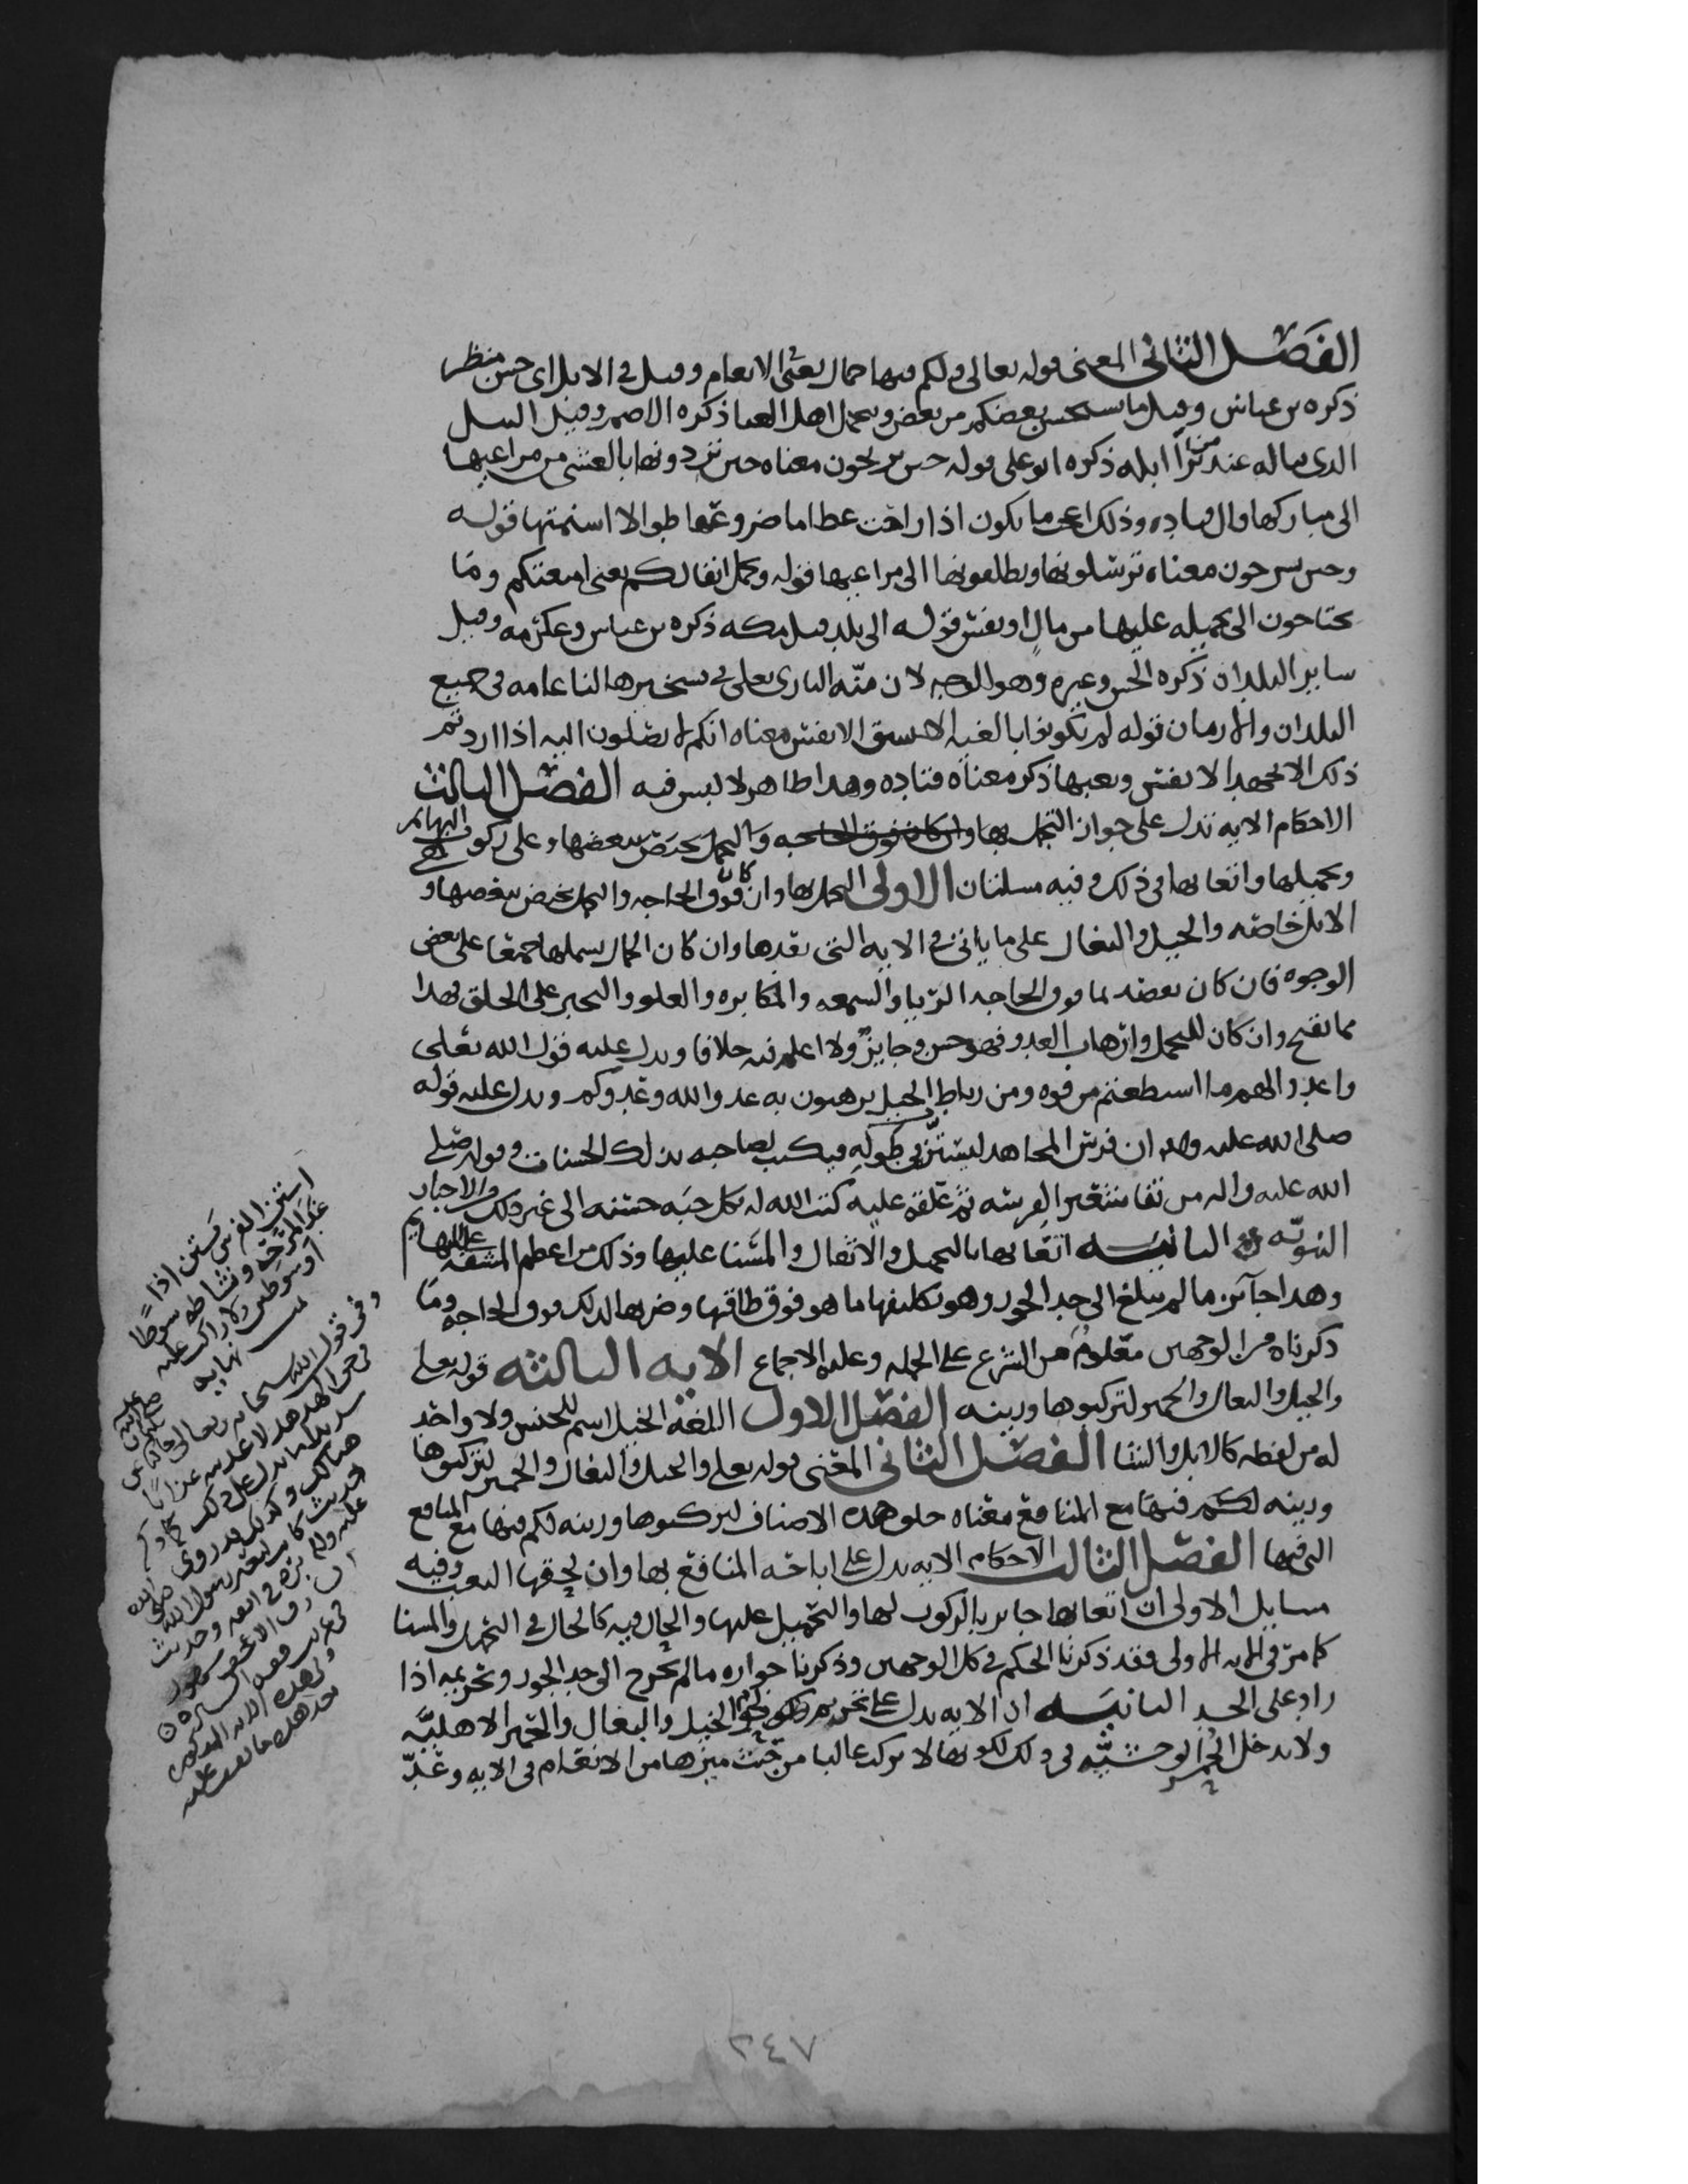 الفصل الثاني المعنى قوله تعالى ولكم فيها جمال يعني الانعام وقيل في الابل اي حسن منظر
ذكره بن عباس وقيل ما يستحسن بعضكم من بعض وتحمل اهل ذكره الاصم وقيل
الذي يناله عند من ابله ذكره ابو علي قوله حين تريحون معناه حين تردونها بالعشي من مراعيها
الى مباركها قال قتاده وذلك اعجب ما يكون اذا راحت عظاما ضروعها طوالا اسنمتها قوله
وحين تسرحون معناه ترسلونها وتطلقونها الى مراعيها قوله وتحمل اثقالكم يعني امتعتكم وما
تحتاجون الى تحميله عليها من مال او نفس قوله الى بلد قيل مكه ذكره بن عباس وعكرمه وقيل
ساير البلدان ذكره الحسن وغيره وهو الوجه لان منّه الباري تعلى في تسخيرها لنا عامه في جميع
البلدان والازمان قوله لم تكونوا بالغيه الا بشق الانفس معناه انكم لا تصلون اليه اذا اردتم
ذلك الا بجهد الانفس وتعبها ذكر معناه قتاده وهذا ظاهر لا لبس فيه الفصل الثالث
الاحكام الايه تدل على جواز التجمل بها وان كان فوق الحاجه والتجمل يختص ببعضها وعلى ركوب البهائم
وتحميلها واتعابها في ذلك وفيه مسلتان الاولى التجمل بها وان كان فوق الحاجه والتجمل يختص ببعضها و
الابل خاصه والخيل والبغال على ما ياتي في الايه التي بعدها وان كان الجمال يشملها جمعا على بعض
الوجوه فان كان بعضه لما فوق الحاجه الريا والسمعه والمكابره والعلو والتجبر على الخلق فهذا
مما يقبح وان كان للتجمل وارهاب العدو فهو حسن وجايز ولا اعلم فيه خلافا ويدل عليه قول الله تعلى
واعدوا لهم ما استطعتم من قوه ومن رباط الخيل ترهبون به عدو الله وعدوكم ويدل عليه قوله
صلى الله عليه واله ان فرس المجاهد ليستن في طوله فيكتب لصاحبه بذلك الحسنات وقوله صلى
الله عليه واله من نقا شعير لفرسه ثم علقه عليه كتب الله له بكل حبه حسنه الى غير ذلك والاخبار
النبويّه الثانيه اتعابها بالتحمل والاثقال والسنا عليها وذلك من اعظم المشقه على البهايم
وهذا جايز ما لم يبلغ الى حد الجور وهو تكليفها ما هو فوق طاقتها وضربها لذلك فوق الحاجه وما
ذكرناه من الوجهين معلوم من الشرع على الجمله وعليه الاجماع الايه الثالثه قوله تعلى
والخيل والبغال والحمير لتركبوها وزينه الفصل الاول اللغه الخيل اسم للجنس ولا واحد
له من لفظه كالابل والنسا الفصل الثاني المعنى قوله تعلى والخيل والبغال والحمير لتركبوها
وزينه لكم فيها مع المنافع معناه خلق هذه الاصناف لتركبوها وزينه لكم فيها مع المنافع
التي فيها الفصل الثالث الاحكام الايه تدل على اباحه المنافع بها وان لحقها التعب وفيه
مسايل الاولى ان اتعابها جايز بالركوب لها والتحميل عليها والحال فيه كالحال في التحمل والسنا
كما مرّ في الايه الاولى فقد ذكرنا الحكم في كل الوجهين وذكرنا جوازه ما لم يخرج الى حد الجور وتحريمه اذا
زاد على الحد الثانيه ان الايه تدل على تحريم لحوم الخيل والبغال والحمير الاهليّه
ولا يدخل الحمر الوحشيّه في ذلك لكونها لا تركب غالبا من حيث ميزها من الانعام في الايه وعدّ
استن الفرس يستن اذا
غدا لمرحه ونشاطه شوطا
او شوطين ولا راكب عليه
نهايه
وفي قول الله سبحانه وتعالى حاكيا عن
سليمان
٢٤٧